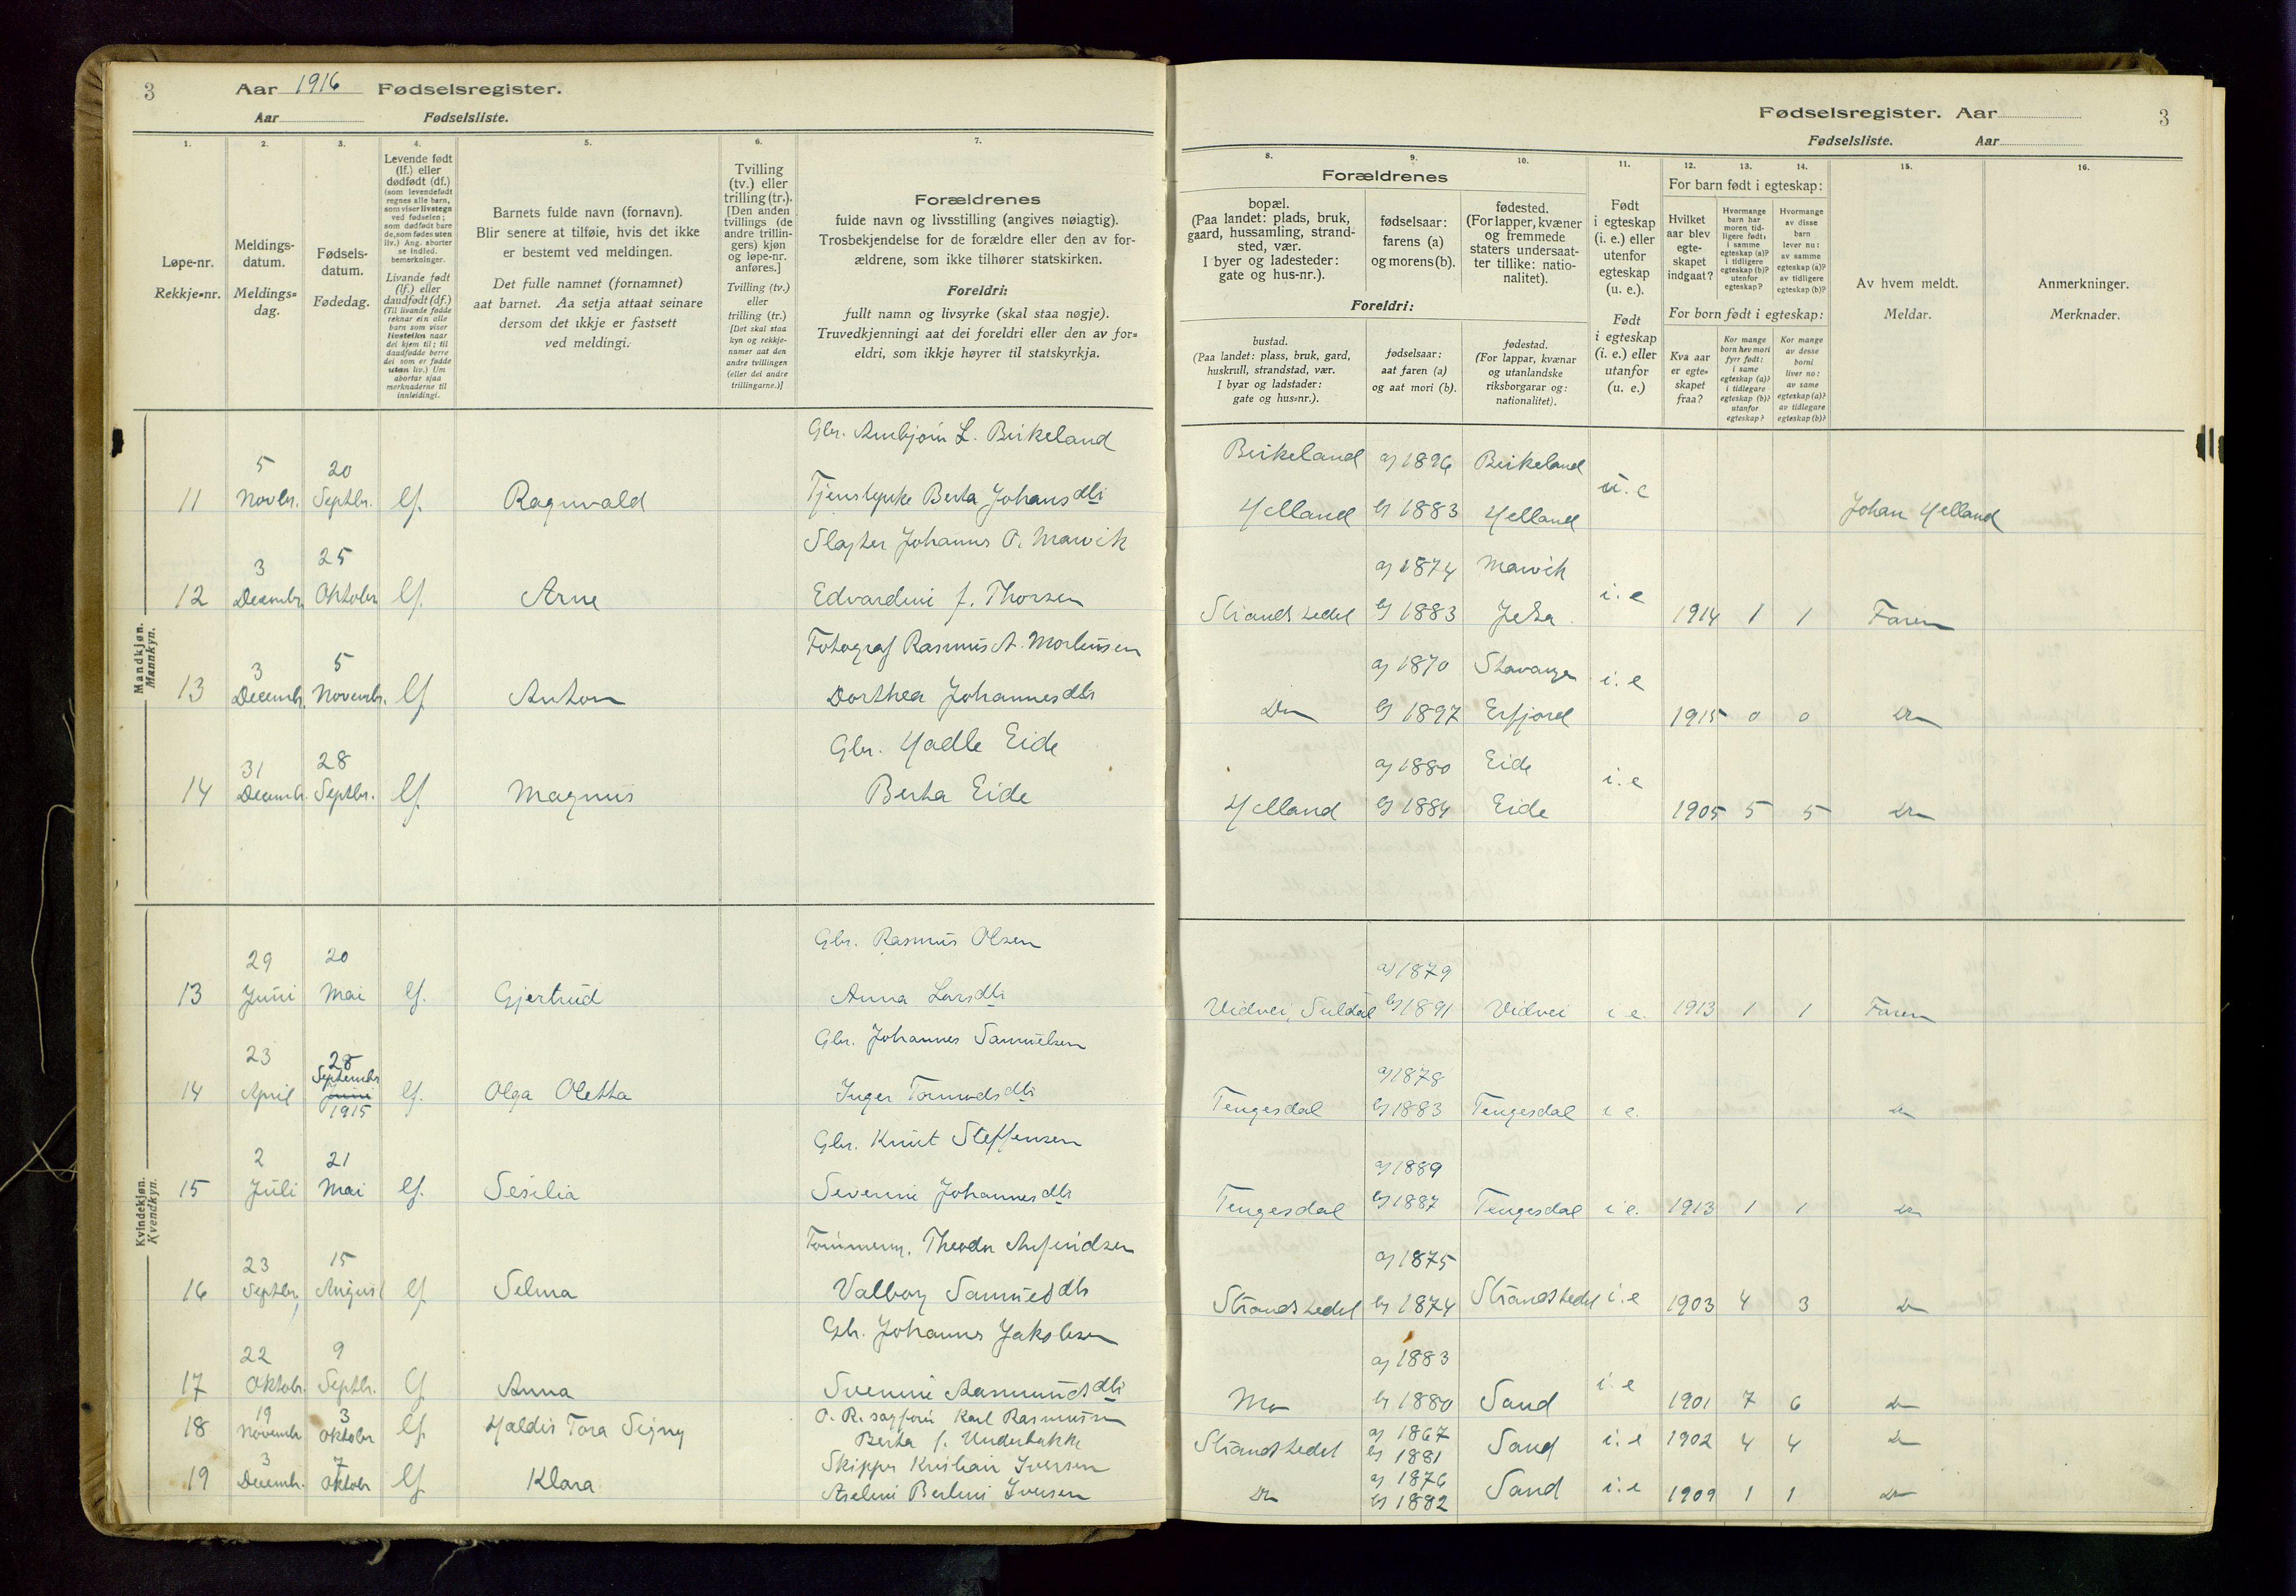 3
Aar 1916 Fødselsregister.
Aar Fødselsliste.
1.
2.
3.
4.
5.
6.
7.
Løpe-nr.
Rekkje-nr.
Meldings-
datum.
Meldings-
dag.
Fødsels-
datum.
Fødedag.
Levende født
(lf.) eller
dødfødt (df.)
(som levendefødt
regnes alle barn,
som viser livstegn
ved fødselen;
som dødfødt bare
de, som fødes uten
liv.) Ang. aborter
se indled.
bemerkninger.
Livande født
(lf.) eller
daudfødt (df.)
(Til livande fødde
reknar ein alle
barn som viser
livsteikn naar
dei kjem til; til
daudfødde berre
dei som er fødde
utan liv.) Um
abortar sjaa
merknaderne til
innleidingi.
Barnets fulde navn (fornavn).
Blir senere at tilføie, hvis det ikke
er bestemt ved meldingen.
Det fulle namnet (fornamnet)
aat barnet. Aa setja attaat seinare
dersom det ikkje er fastsett
ved meldingi.
Tvilling
(tv.) eller
trilling (tr.).
[Den anden
tvillings (de
andre trillin-
gers) kjøn
og løpe-nr.
anføres.]
Tvilling (tv.)
eller
trilling (tr.)
[Det skal staa
kyn og rekkje-
numer aat den
andre tvillingen
(eller dei andre
trillingarne.)]
Forældrenes
fulde navn og livsstilling (angives nøiagtig).
Trosbekjendelse for de forældre eller den av for-
ældrene, som ikke tilhører statskirken.
Foreldri:
fullt namn og livsyrke (skal staa nøgje).
Truvedkjenningi aat dei foreldri eller den av for-
eldri, som ikkje høyrer til statskyrkja.
Mandkjøn.
Mannkyn.
Gbr. Arnbjørn L. Birkeland
5 20
11 Novbr. Septbr. lf. Ragnvald Tjenstpike Berta Johansdtr
Slagter Johannes P. Marvik
3 25
12 Decembr. Oktober lf. Arne Edvardine f. Thorsen
Fotograf Rasmus A. Mortensen
3 5
13 Decembr. Novembr. lf. Anton Dorthea Johannesdtr
Gbr. Hadle Eide
31 28
14 Decembr. Septbr. lf. Magnus Berta Eide
Kvindekjøn.
Kvendkyn.
Gbr. Rasmus Olsen
29 20
13 Juni Mai lf. Gjertrud Anna Larsdtr
Gbr. Johannes Samuelsen
23 28
Septembr
14 April Juni lf. Olga Oletta Inger Tormodsdtr
1915
Gbr. Knut Steffensen
2 21
15 Juli Mai lf. Sesilia Severine Johannesdtr
Tømmerm. Theodor Asfindsen
23 15
16 Septbr. August lf. Selma Valborg Samuelsdtr
Gbr. Johannes Jakobsen
22 9
17 Oktobr. Septbr. lf. Anna Sverine Rasmundsdtr
19 3
18 Novembr Oktober lf. Haldis Tora Signy O. R. sagfører Karl Rasmussen
Berta f. Underbakke
3 7
19 Decembr. Oktobr lf. Klara Skipper Kristian Iversen
Aseline Berline Iversen
Fødselsregister. Aar
3
Fødselsliste. Aar
8.
9.
10.
11.
12.
13.
14.
15.
16.
Forældrenes
bopæl.
(Paa landet: plads, bruk,
gaard, hussamling, strand-
sted, vær.
I byer og ladesteder:
gate og hus-nr.).
fødselsaar:
farens (a)
og morens (b).
fødested.
(For lapper, kvæner
og fremmede
staters undersaat-
ter tillike: natio-
nalitet).
Foreldri:
bustad.
(Paa landet: plass, bruk, gard,
huskrull, strandstad, vær.
I byar og ladstader:
gate og hus-nr.).
fødselsaar:
aat faren (a)
og aat mori (b).
fødestad.
(For lappar, kvænar
og utanlandske
riksborgarar og:
nationalitet).
Født
i egteskap
(i. e.) eller
utenfor
egteskap
(u. e.).
Født
i egteskap
(i. e.) eller
utanfor
(u. e.)
For barn født i egteskap:
Hvilket
aar blev
egte-
skapet
indgaat?
Hvormange
barn har
moren tid-
ligere født:
i samme
egteskap (a)?
i tidligere
egteskap (b)?
utenfor
egteskap?
Hvormange
av disse
barn
lever nu:
av samme
egteskap (a)?
av tidligere
egteskap (b)?
For born født i egteskap:
Kva aar
er egte-
skapet
fraa?
Kor mange
born hev mori
fyrr født:
i same
egteskap (a)?
i tidlegare
egteskap (b)?
utanfor
egteskap?
Kor mange
av desse
borni
liver no:
av same
egteskap (a)?
av tidlegare
egteskap (b)?
Av hvem meldt.
Meldar.
Anmerkninger.
Merknader.
Birkeland a) 1896 Birkeland
u. e
Helland b) 1883 Helland Johan Helland
a) 1874 Marvik
i. e
Strandstedet b) 1883 Jelsa 1914 1 1 Faren
a) 1870 Stavanger
i. e
Do b) 1897 Erfjord 1915 0 0 Do
a) 1880 Eide
i. e
Helland b) 1884 Eide 1905 5 5 Do
a) 1879
Vidvei, Suldal b) 1891 Vidvei i e. 1913 1 1 Faren
a) 1878
Tengesdal b) 1883 Tengesdal i e. Do
a) 1889
Tengesdal b) 1887 Tengesdal i e. 1913 1 1 Do
a) 1875
Strandstedet b) 1874 Strandstedet i. e 1903 4 3 Do
a) 1883
i. e
Mo b) 1880 Sand 1901 7 6 Do
a) 1867
Strandstedet b) 1881 Sand i. e 1902 4 4 Do
a) 1876
Do b) 1882 Sand i. e 1909 1 1 Do